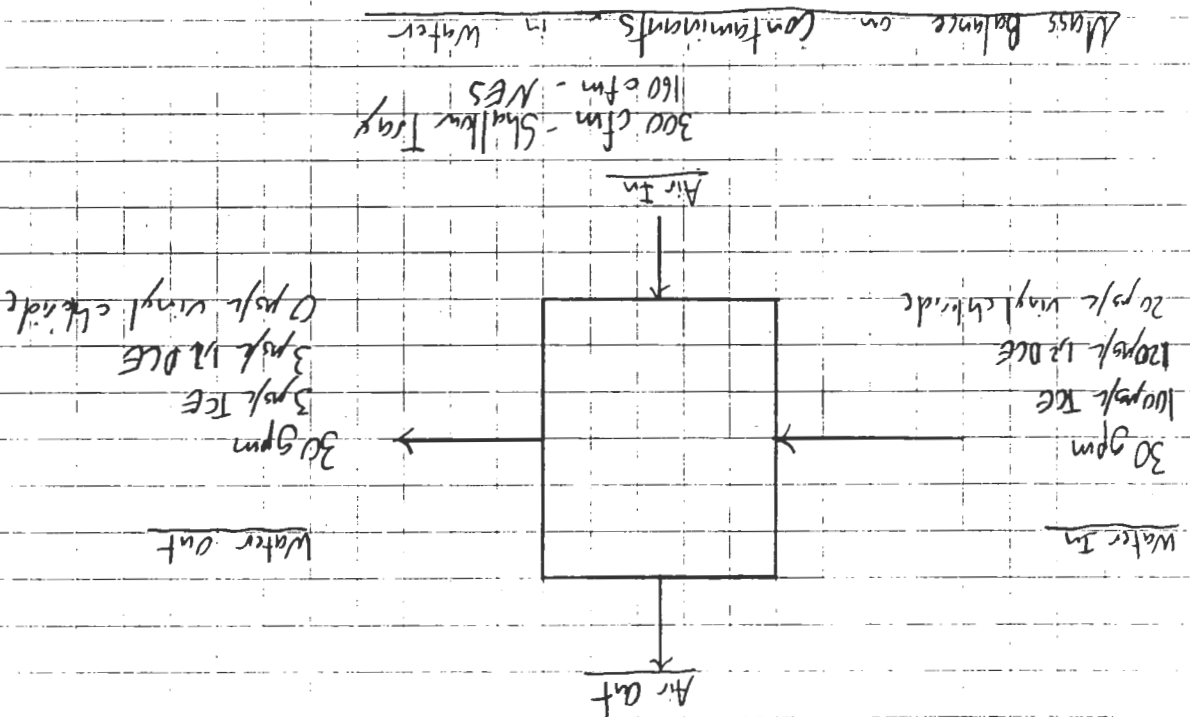 Air Out
Water In
30 gpm
100 µg/L TCE
120 µg/L 1,2 DCE
20 µg/L vinyl chloride
Water Out
30 gpm
3 µg/L TCE
3 µg/L 1,2 DCE
0 µg/L vinyl chloride
Air In
300 cfm - Shallow Tray
cfm - NES
Mass Balance on Contaminants in Water